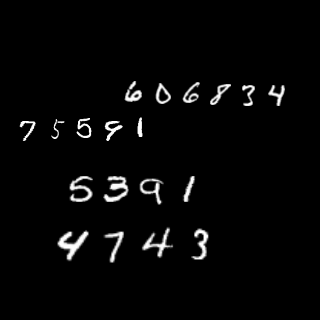 606834
75591
5391
4743